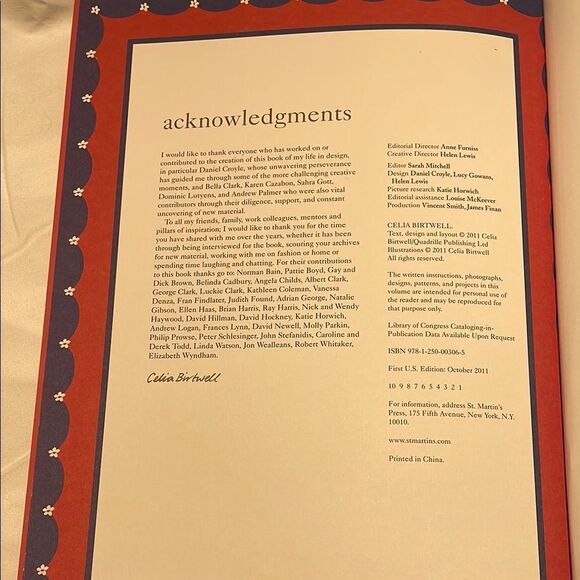 acknowledgments
I would like to thank everyone who has worked on or
contributed to the creation of this book of my life in design,
in particular Daniel Croyle, whose unwavering perseverance
has guided me through some of the more challenging creative
moments, and Bella Clark, Karen Cazabon, Sahra Gott,
Dominic Lutyens, and Andrew Palmer who were also vital
contributors through their diligence, support, and constant
uncovering of new material.
To all my friends, family, work colleagues, mentors and
pillars of inspiration; I would like to thank you for the time
you have shared with me over the years, whether it has been
through being interviewed for the book, scouring your archives
for new material, working with me on fashion or home or
spending time laughing and chatting. For their contributions
to this book thanks go to: Norman Bain, Pattie Boyd, Gay and
Dick Brown, Belinda Cadbury, Angela Childs, Albert Clark,
George Clark, Luckie Clark, Kathleen Coleman, Vanessa
Denza, Fran Findlater, Judith Found, Adrian George, Natalie
Gibson, Ellen Haas, Brian Harris, Ray Harris, Nick and Wendy
Haywood, David Hillman, David Hockney, Katie Horwich,
Andrew Logan, Frances Lynn, David Newell, Molly Parkin,
Philip Prowse, Peter Schlesinger, John Stefanidis, Caroline and
Derek Todd, Linda Watson, Jon Wealleans, Robert Whitaker,
Elizabeth Wyndham.
Celia Birtwell
Editorial Director Anne Furniss
Creative Director Helen Lewis
Editor Sarah Mitchell
Design Daniel Croyle, Lucy Gowans,
Helen Lewis
Picture research Katie Horwich
Editorial assistance Louise McKeever
Production Vincent Smith, James Finan
CELIA BIRTWELL.
Text, design and layout © 2011 Celia
Birtwell/Quadrille Publishing Ltd
Illustrations © 2011 Celia Birtwell
All rights reserved.
The written instructions, photographs,
designs, patterns, and projects in this
volume are intended for personal use of
the reader and may be reproduced for
that purpose only.
Library of Congress Cataloging-in-
Publication Data Available Upon Request
ISBN 978-1-250-00306-5
First U.S. Edition: October 2011
10 9 8 7 6 5 4 3 2 1
For information, address St. Martin's
Press, 175 Fifth Avenue, New York, N.Y.
10010.
www.stmartins.com
Printed in China.